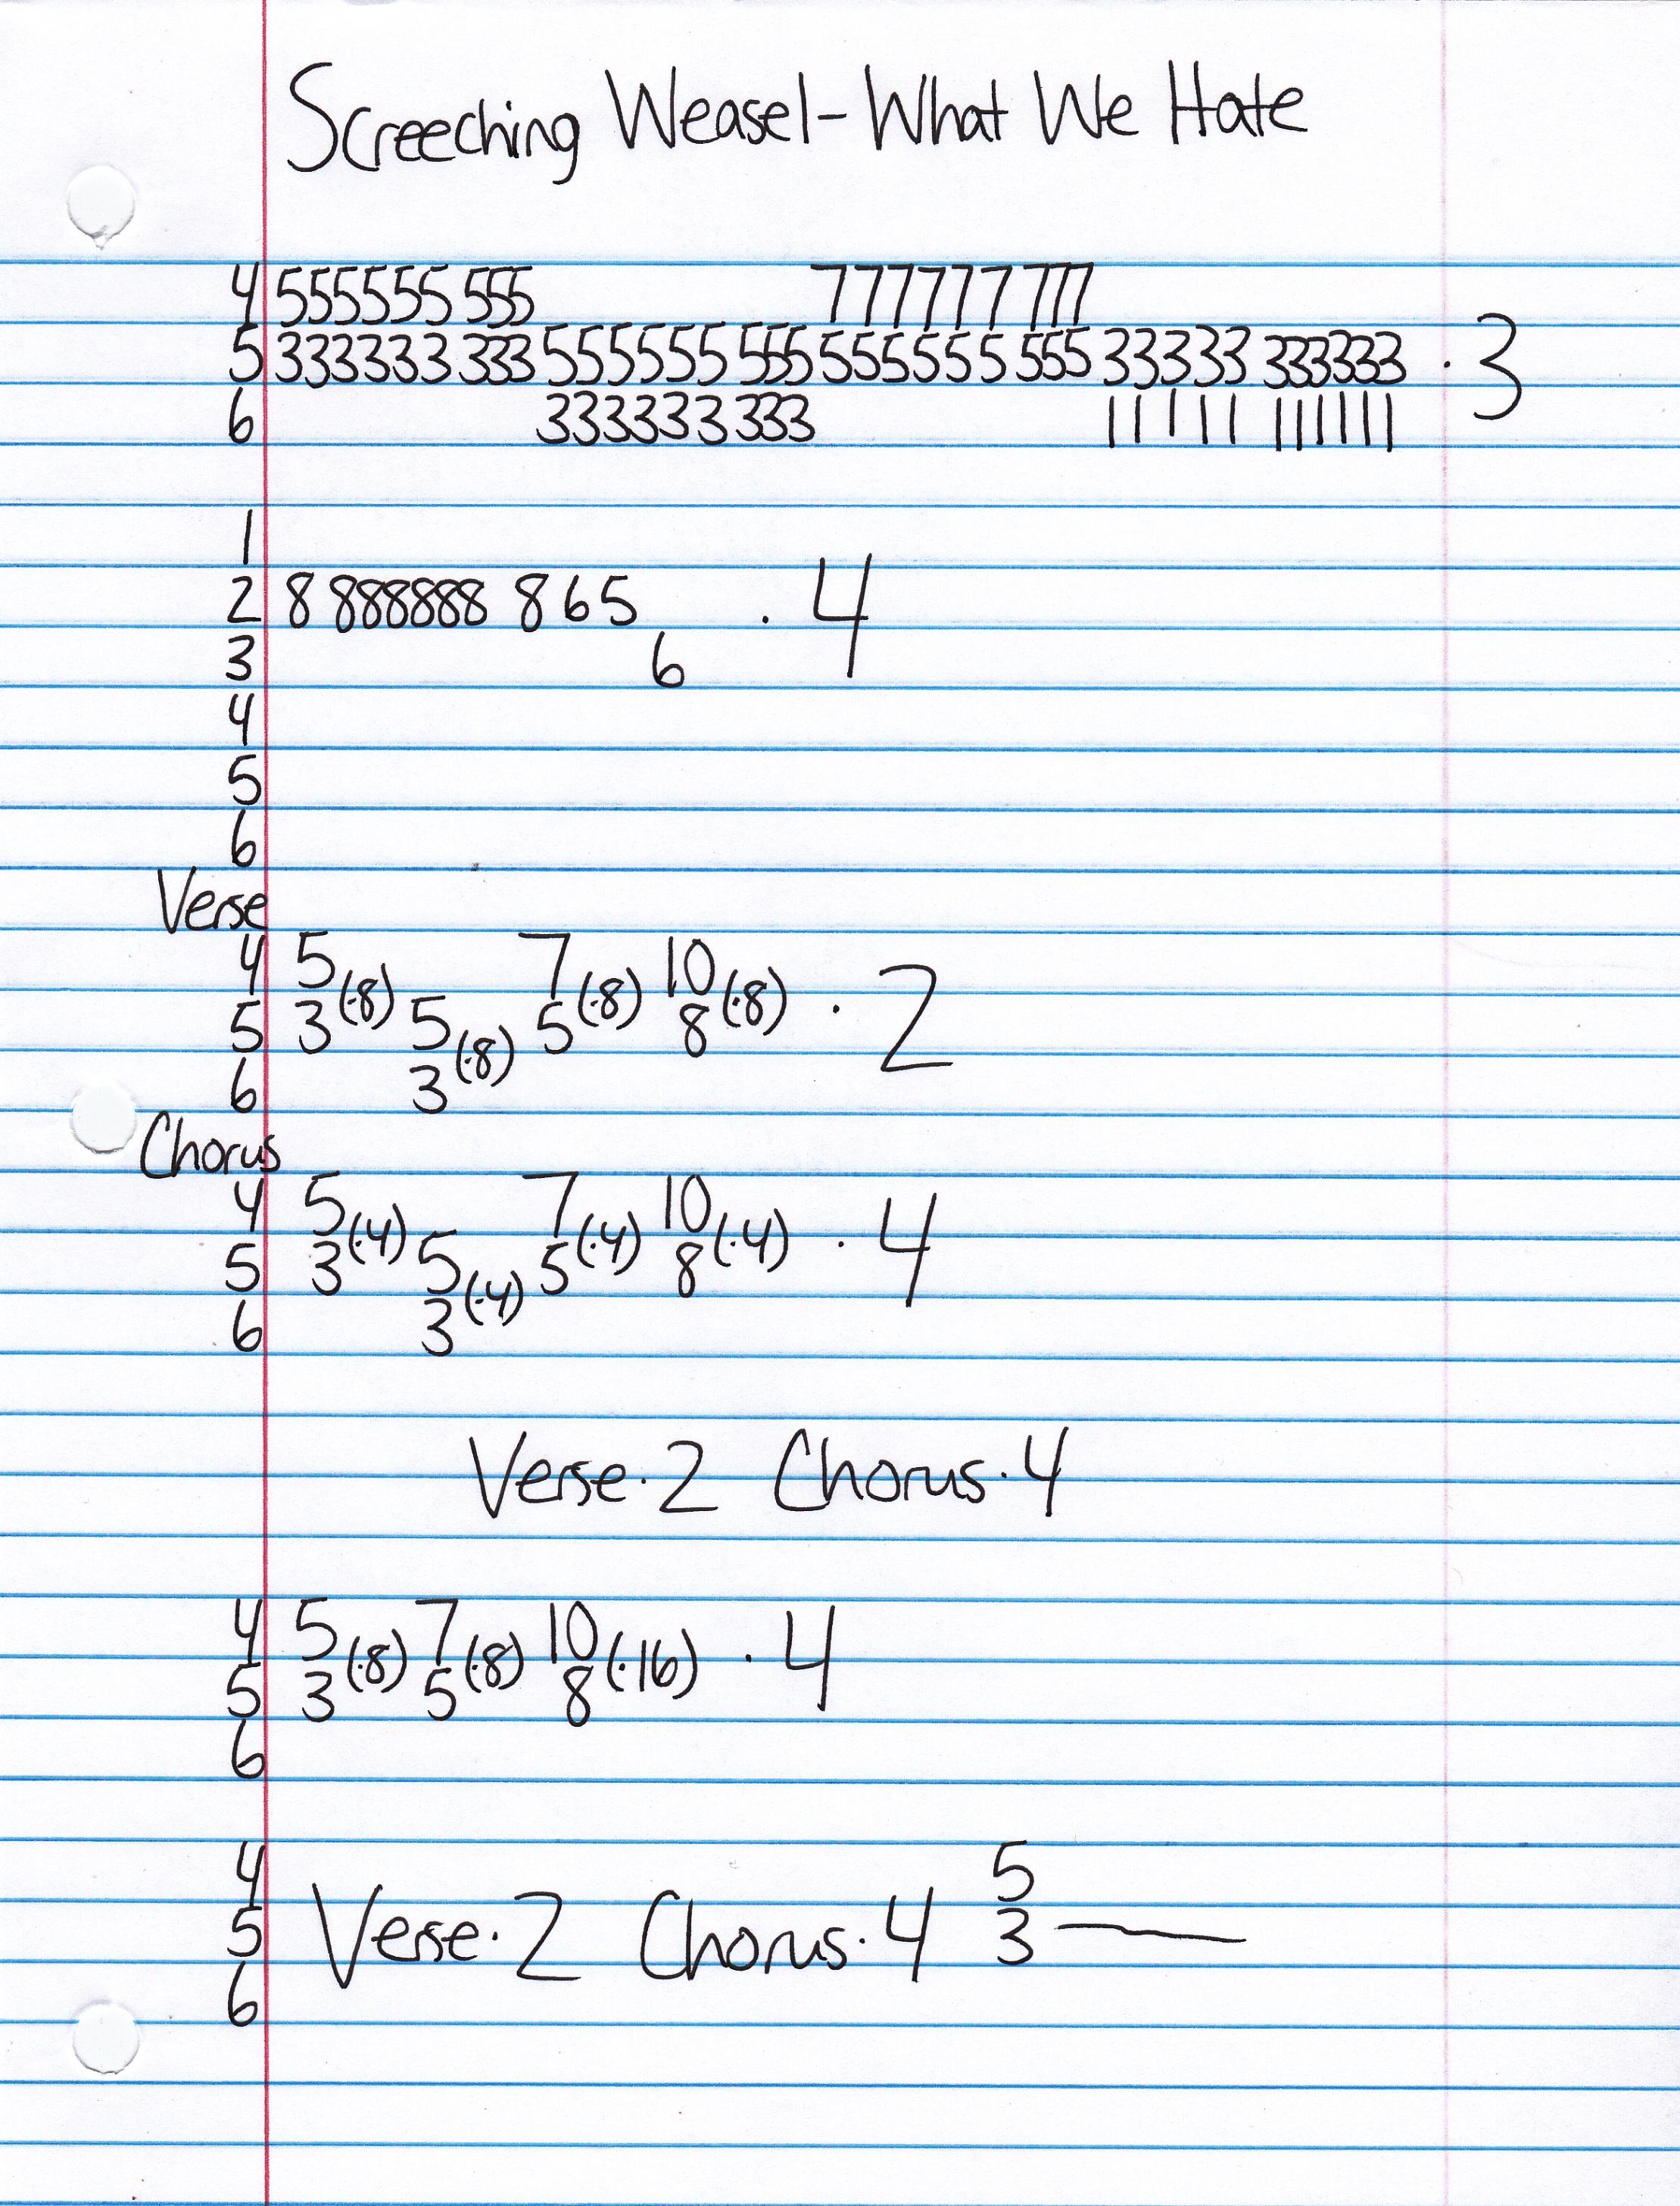 Screeching Weasel - What We Hate
4 555555 555 777777 777
5 333333 333 555555 555 555555 555 33333 333333 · 3
6 333333 333 11111 111111
1
2 8 888888 8 6 5 · 4
3 6
4
5
6
Verse
4 5 7 10
5 3 (·8) 5 5 (·8) 8 (·8) · 2
6 3 (·8)
Chorus
4 5 7 10
5 3 (·4) 5 5 (·4) 8 (·4) · 4
6 3 (·4)
Verse · 2 Chorus · 4
4 5 7 10
5 3 (·8) 5 (·8) 8 (·16) · 4
6
4 5
5 Verse · 2 Chorus · 4 3 —
6